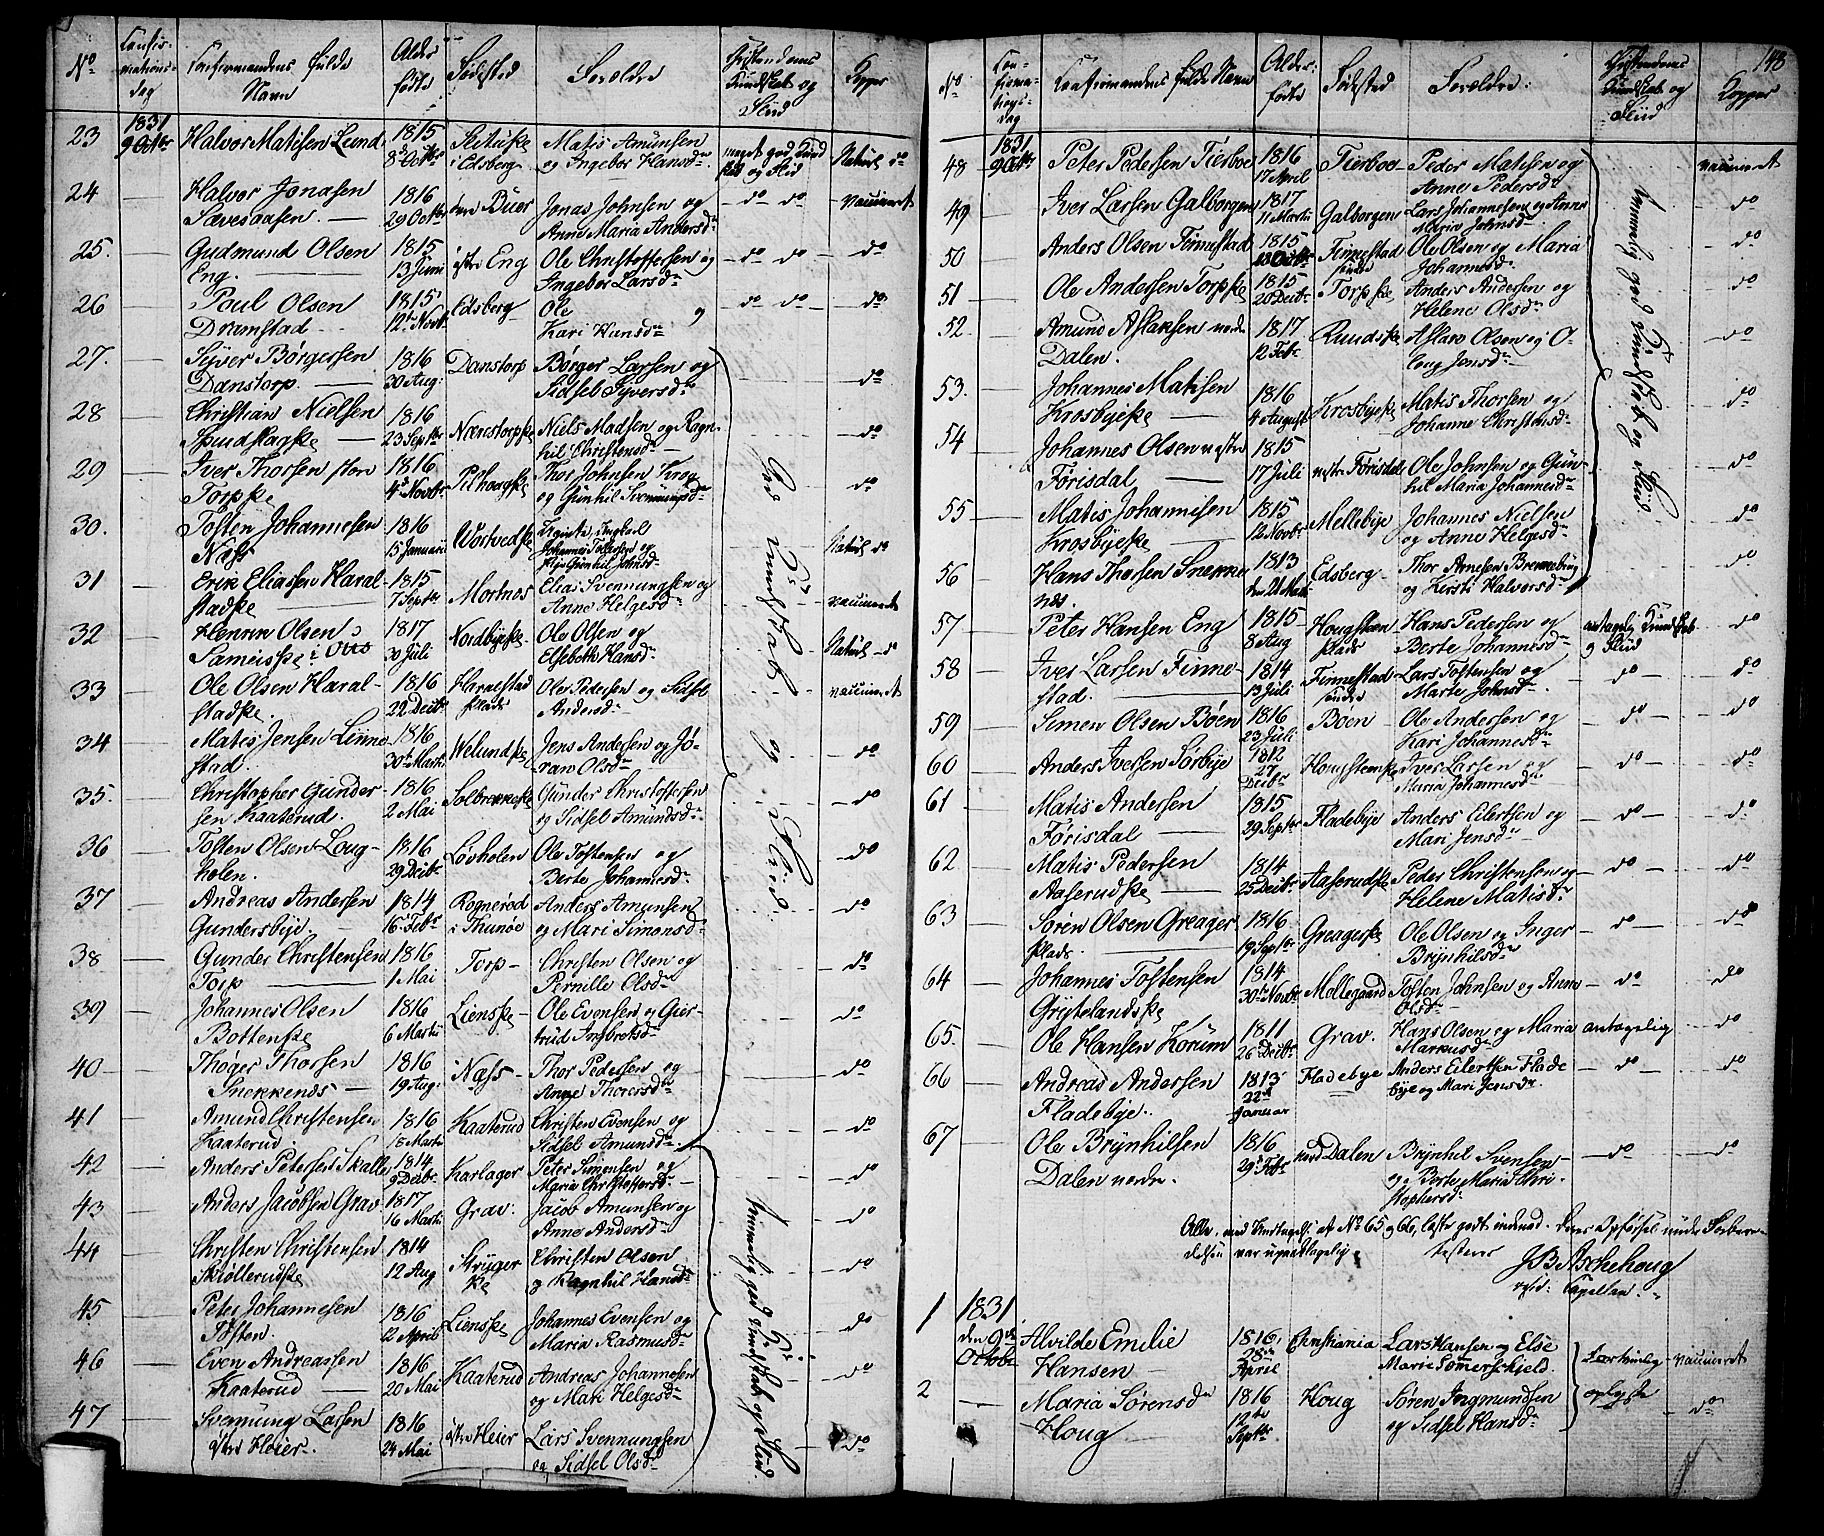 No
Confirmandens fulde
Navn
Alder
født
Fødested
Forældre
Kundskab og
Flid
Kopper
23
1831
9 Octbr
Halvor Matisen Lund
1815
8 Octbr
i Edsberg
Matis Amunsen
og Ingebor Hansdr
meget god Kund
skab og Flid
Naturl do
24
Halvor Jonasen
Sævesaasen
1816
29 Octbr
Buer
Jonas Johnsen og
Anne Maria Andersdr
do do
vaccineret
25.
Gudmund Olsen
Eng.
1815
13 Juni
Eng
Ole Christoffersen og
Ingebor Larsdr
do do
do
26
Poul Olsen
Dramstad
1815
12 Novbr
Edsberg
Ole og
Kari Hansdr
do do
do
27.
Syver Børgersen
Danstorp
1816
30 Aug:
Danstorp
Børger Larsen og
Sidsel Syversdr
do
28
Christian Nielsen
1816
23 Septbr
Niels Madsen og Ragn-
hil Christensdr
do
29
Iver Thorsen
Torpske
1816
4 Novbr
Thor Johnsen
og Gunhil Svennungsdr
do
30.
Tosten Johannesen
Næss
1816
15 Januarii
Wortvedske
Johannes Tostensen og
Pige Gunhil Johnsdr
Naturl do
31
Erik Eliassen Haral-
stadske
1815
7 Septbr
Mortnes
Elias Svennungsen og
Anne Helgesdr
vaccineret
32
Henrik Olsen
1817
30 Juli
Nordbyeske
Ole Olsen og
Elsebeth Hansdr
Naturl do
33
Ole Olsen Haral-
stadske.
1816
22 Decbr
Haralstad
plads
Ole Pedersen og Sidsel
Andersdr
vaccineret
34
Matis Jensen Linne-
stad
1816
30 Marti
Welundske
Jens Andersen og Jø-
ran Olsdr
do
35.
Christopher Gunder-
sen Kaaterud.
1816
2 Mai
Solbrekke
Gunder Christoffersen
og Sidsel Amundsdr
do
36
Tosten Olsen Loug-
holen.
1816
29 Decbr
Løvholen
Ole Tostensen og
Berte Johannesdr
do
37
Andreas Andersen
Gundersbye.
1814
16 Febr
Rognerød
i Thunøe
Anders Amunsen
og Mari Simonsdr
do
38
Gunder Christensen
Torp
1816
1 Mai
Torp
Christen Olsen og
Pernille Olsdr
do
39
Johannes Olsen
Bottenske
1816
6 Martii
Lienske
Ole Evensen og Gier-
trud Ingbretsdr
do
40
Thøger Thorsen
Snekkenes
1816
19 Aug:
Næss
Thor Pedersen og
Anne Thoresdr
do
41
Amund Christensen
Kaaterud
1816
18 Marti
Kaaterud
Christen Evensen og
Sidsel Amundsdr
do
42
Anders Petersen Skalle
1814
9 Decbr
Karlager
Peter Simensen og
Maria Christoffersdr
do
43
Anders Jacobsen Grav
1817
16 Marti
Grav.
Jacob Amunsen og
Anne Andersdr
do
44
Christen Christensen
Skiøllerudske
1814
12 Aug
Stryger
ke
Christen Olsen
og Ragnhil Hansdr
do
45
Peter Johannesen
Tosten.
1816
12 April
Lienske
Johannes Evensen og
Maria Rasmusdr
do
46
Even Andreassen
Kaaterud
1816
20 Mai
Kaaterud
Andreas Johannesen
og Mari Helgesdr
do
47
Svennung Larsen
østre Heier.
1816
24 Mai
østre Heier
Lars Svennungsen
og Sidsel Olsdr
do
God Kundskab og Flid
temmelig god Kundskab og Flid
148
No
Con-
firma-
tions
dag
Confirmandens fulde Navn
Alder:
født
Fødested
Forældre:
Kundskab og
Flid
Kopper
48
1831
9 Octbr
Peter Pedersen Tierboe
1816
17 April
Tierboe
Peder Matisen og
Anne Pedersdr
vaccineret
49
Iver Larsen Galborgen
1817
11 Martii
Galborgen
Lars Johannesen og Anne
Maria Johnsdr
do
50
Anders Olsen Finnestad
1815
Finnestad
søndre
Ole Olsen og Maria
Johannesdr
do
51
Ole Andersen Torpske
1815
20 Decbr
Torpske
Anders Andersen og
Helene Olsdr
do
52.
Amund Aslaksen nordre
Dalen.
1817
12 Febr
Ruudske
Aslaro Olsen og O-
loug Jensdr
do
53.
Johannes Matisen
Krosbyeske
1816
4 August
Krosbyeske
Matis Thorsen og
Johanne Christensdr
do
54
Johannes Olsen vestre
Førisdal
1815
17 Juli
vestre Førisdal
Ole Johnsen og Gun-
hil Maria Johannesdr
do
55
Matis Johannesen
Krosbyeske
1815
12 Novbr
Mellebye
Johannes Nielsen
og Anne Helgesdr
do
56
Hans Thorsen Snekke-
næs.
1813
den 21 Mai
Edsberg
Thor Arnesen Brennebug
og Kirsti Halvorsdr
do
temmelig god Kundskab og Flid
57
Peter Hansen Eng
1815
8 Aug
Hougsteen
plads
Hans Pedersen og
Berte Johannesdr
antagelig Kundskab
og Flid
do
58
Iver Larsen Finne-
stad.
1814
13 Juli
Finnestad
søndre
Lars Tostensen og
Marte Johnsdr
do
do
59
Simen Olsen Bøen
1816
23 Juli
Boen
Ole Andersen og
Kari Johannesdr
do
do
60
Anders Iversen Sørbye
1812
27
Decbr
Hougsteenske
Iver Larsen og
Maria Johannesdr
do
do
61
Matis Andersen
Førisdal
1815
29 Septbr
Fladebye
Anders Eilertsen og
Mari Jensdr
do
do
62
Matis Pedersen
Aaserudske
1814
25 Decbr
Aaserudske
Peder Christensen og
Helene Matisdr
do
do
63
Søren Olsen Greager
plads.
1816
19 Septbr
Greagerske
Ole Olsen og Inger
Brynhilsdr
do
do
64
Johannes Tostensen
Grytelandske
1814
30 Novbr
Møllegaard
Tosten Johnsen og Anne
Olsdr
do
do
65.
Ole Hansen Korum
1811
26 Decbr
Grav.
Hans Olsen og Maria
Markusdr
antagelig
do
66
Andreas Andersen
Fladebye.
1813
22d
Januar
Fladebye
Anders Eilertsen Flade
bye og Mari Jensdr.
do
do
67
Ole Brynhilsen
Dalen nordre.
1816
29 Febr
nord Dalen
Brynhil Svensen
og Berte Maria Chri-
stophersdr
do
do
Alle, med Undtagelse af No 65 og 66, læste godt indenad. Deres Opførsel under Forbere-
delsen var upaaklagelig
testerer
JB Aschehoug
resid: Capellan.
1
1831
den 9de
Octobr
Alvilde Emilie
Hansen
1816
28de
April
Christiania
Lars Hansen og Else
Marie Sommerschield.
vaccineret
2
Maria Sørensdr
Houg
1816
12te
Septbr
Houg
Søren Ingmundsen
og Sidsel Hansdr
oplyste
do